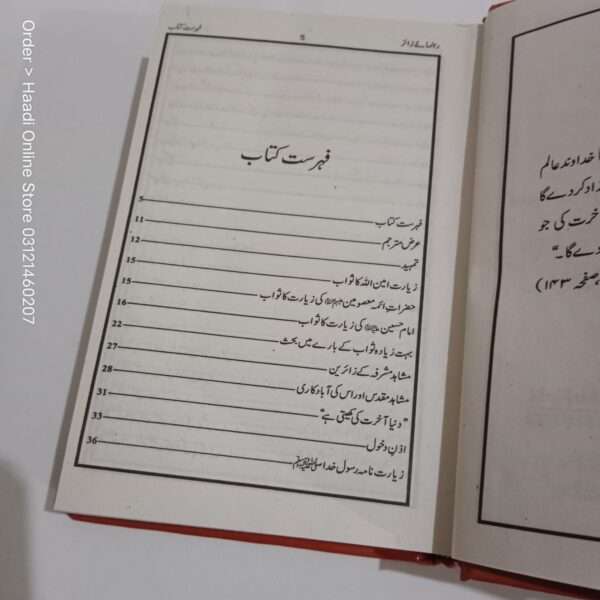 Order > Haadi Online Store 03121460207
رہنمائے زائر 5 فہرست کتاب
فہرست کتاب
فہرست کتاب 5
عرض مترجم 11
تمہید 12
زیارت امین اللہ کا ثواب 15
حضرات ائمہ معصومین علیہم السلام کی زیارت کا ثواب 15
امام حسین علیہ السلام کی زیارت کا ثواب 16
بہت زیادہ ثواب کے بارے میں بحث 22
مشاہد مشرفہ کے زائرین 27
مشاہد مقدس اور اس کی آبادکاری 28
"دنیا آخرت کی کھیتی ہے" 31
اذنِ دخول 33
زیارت نامہ رسول خدا ﷺ 36
خداوند عالم
کر دے گا
آخرت کی جو
دے گا۔"
صفحہ ۱۴۳)